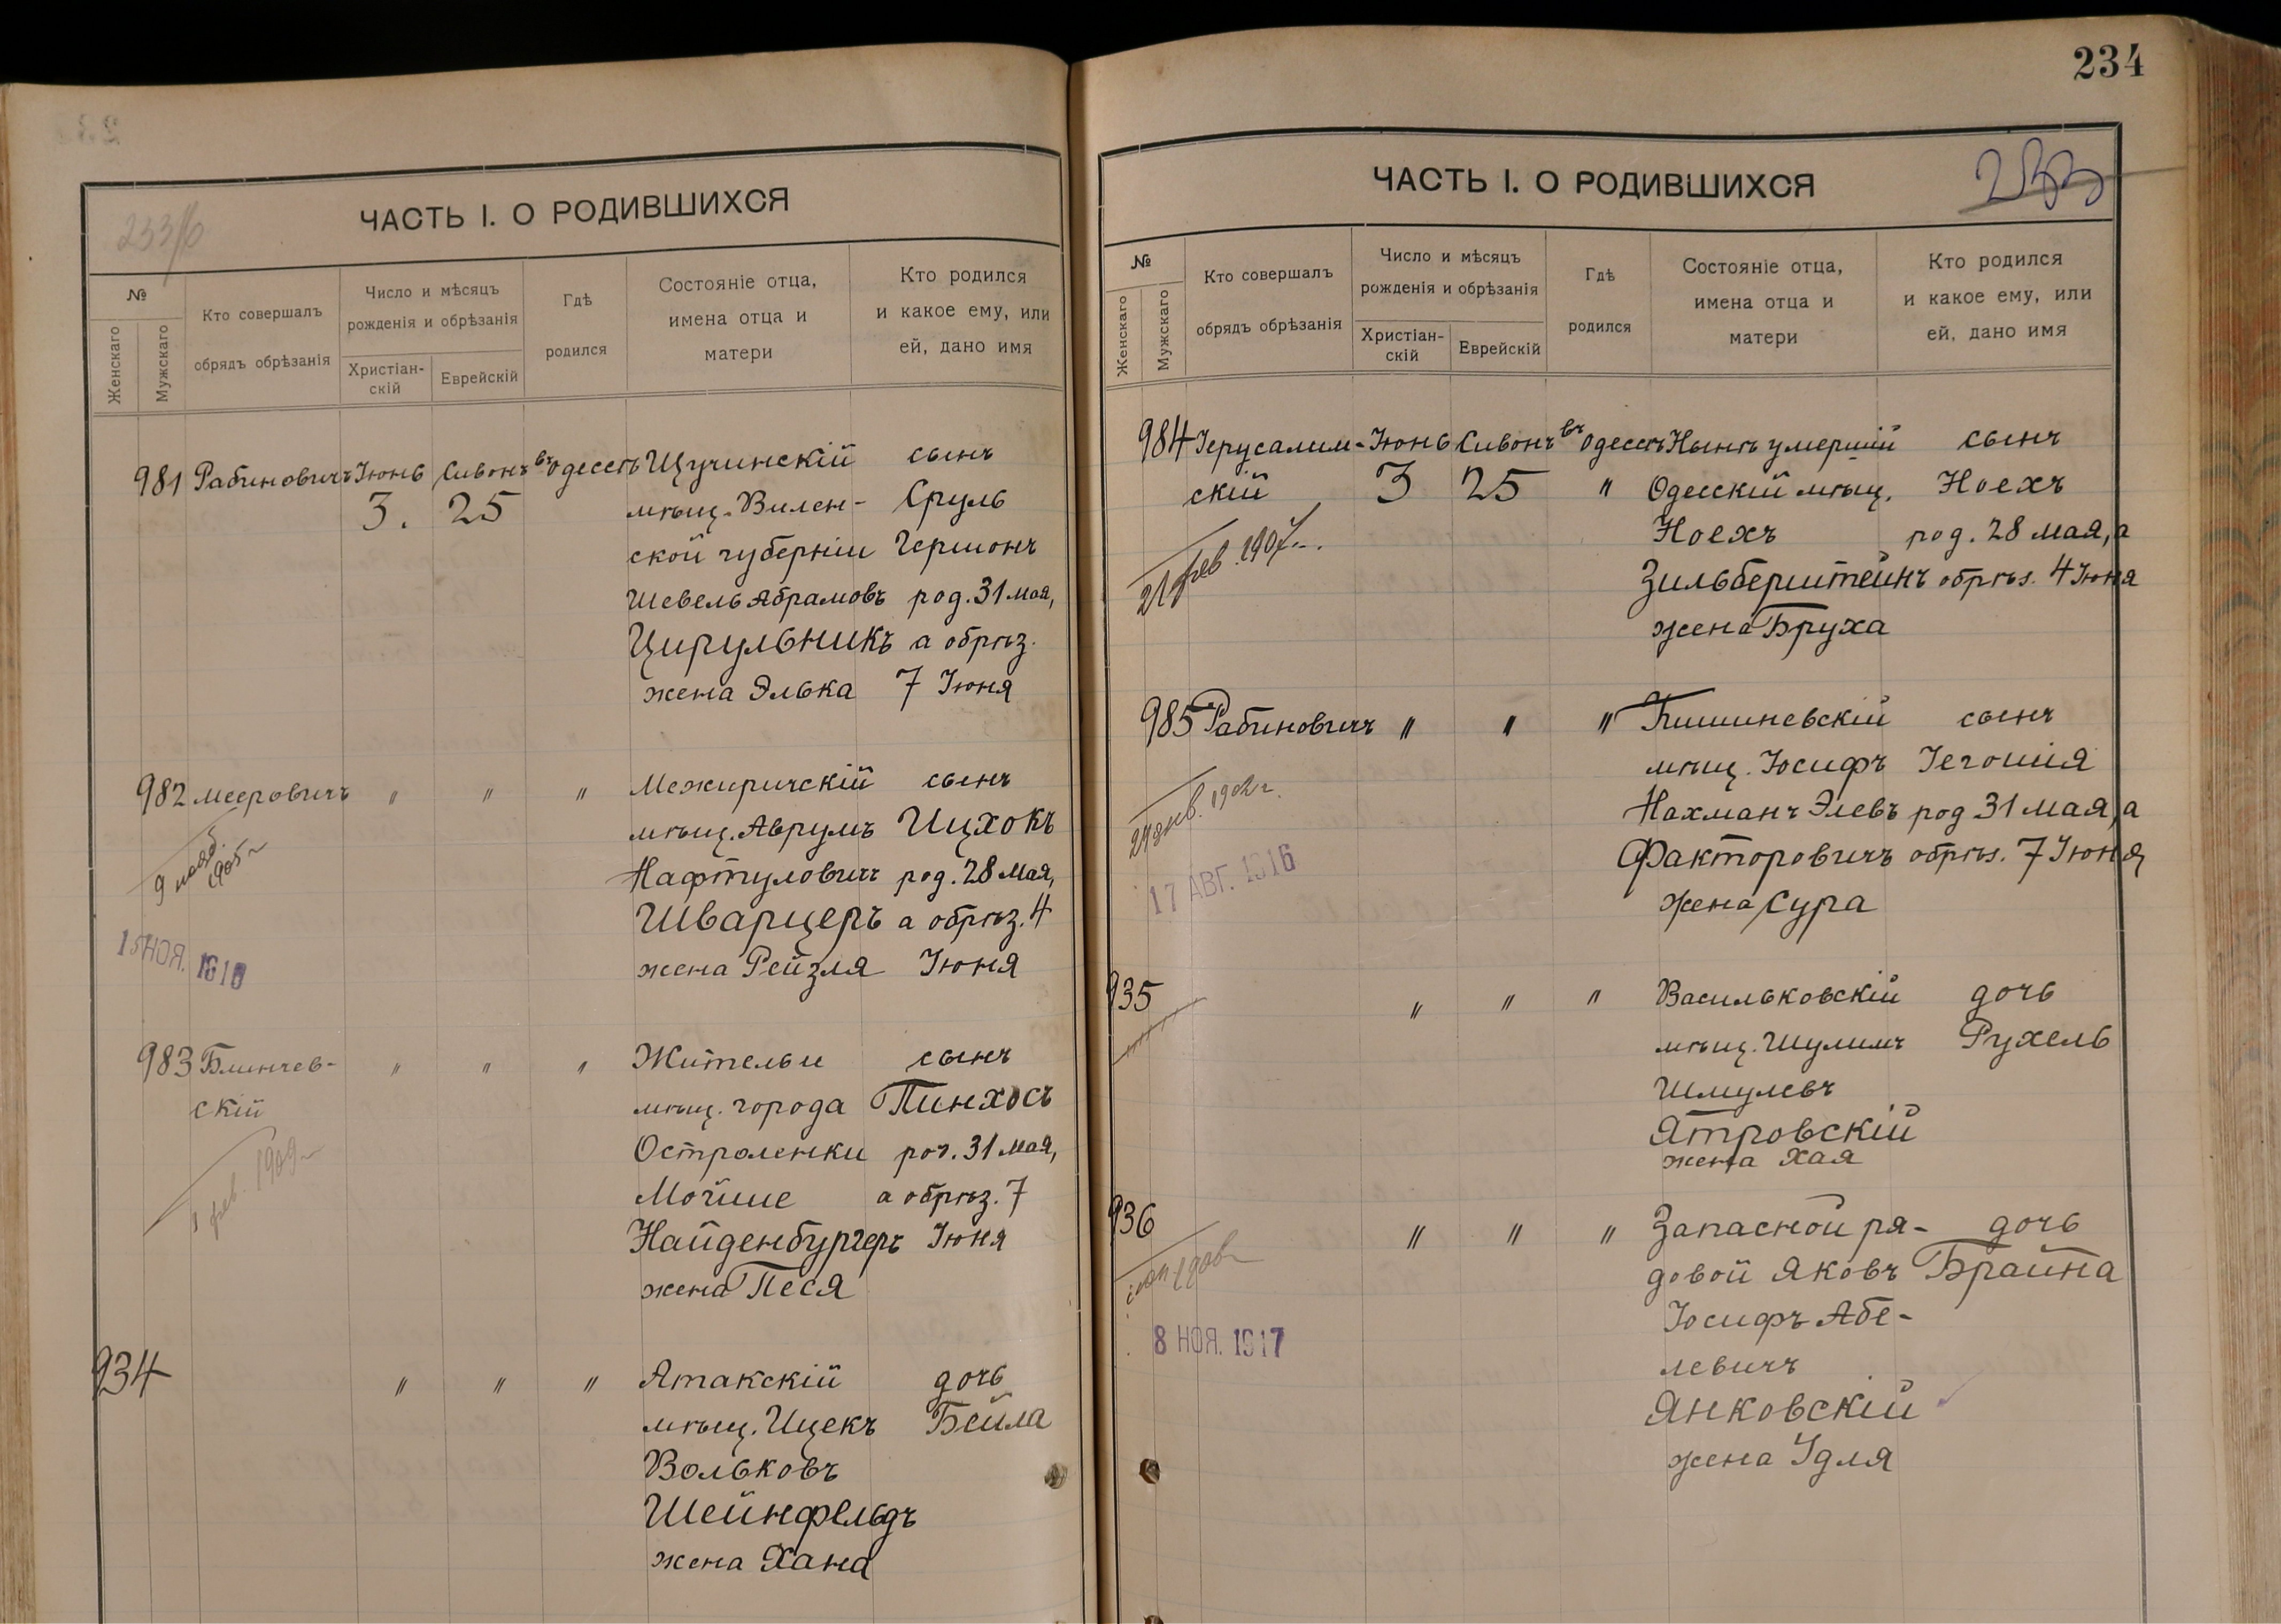 234
ЧАСТЬ I. О РОДИВШИХСЯ
№
Женскаго
Мужскаго
Кто совершалъ
обрядъ обрѣзанія
Число и мѣсяцъ
рожденія и обрѣзанія
Христіан-
скій
Еврейскій
Гдѣ
родился
Состояніе отца,
имена отца и
матери
Кто родился
и какое ему, или
ей, дано имя
981 Рабиновичъ Іюнь Сивонъ въ Одессѣ Щучинскій сынъ
3. 25 мѣщ. Вилен- Сруль
ской губерніи Гершонъ
Шевель Абрамовъ род. 31 мая,
Цирульникъ а обрѣз.
жена Элька 7 Іюня
982 Мееровичъ " " " Межиричскій сынъ
мѣщ. Аврумъ Ицхокъ
Нафтуловичъ род. 28 мая,
Шварцеръ а обрѣз. 4
жена Рейзля Іюня
9 нояб.
1905 г
15 НОЯ. 1916
983 Блинчев- " " " Жительи сынъ
скій мѣщ. города Пинхосъ
Остроленки род. 31 мая,
Мойше а обрѣз. 7
Найденбургеръ Іюня
жена Песя
1 фев. 1909 г
934 " " " Ятакскій дочь
мѣщ. Ицекъ Бейла
Вольковъ
Шейнфельдъ
жена Хана
ЧАСТЬ I. О РОДИВШИХСЯ
233
№
Женскаго
Мужскаго
Кто совершалъ
обрядъ обрѣзанія
Число и мѣсяцъ
рожденія и обрѣзанія
Христіан-
скій
Еврейскій
Гдѣ
родился
Состояніе отца,
имена отца и
матери
Кто родился
и какое ему, или
ей, дано имя
984 Іерусалим- Іюнь Сивонъ въ Одессѣ Нынѣ умершій сынъ
скій 3 25 " Одесскій мѣщ. Ноехъ
Ноехъ род. 28 мая, а
Зильберштейнъ обрѣз. 4 Іюня
жена Бруха
21 фев. 1907 г.
985 Рабиновичъ " " " Кишиневскій сынъ
мѣщ. Іосифъ Іегошія
Нахманъ Элевъ род 31 мая, а
Факторовичъ обрѣз. 7 Іюня
жена Сура
1902 г.
17 АВГ. 1916
935 " " " Васильковскій дочь
мѣщ. Шулимъ Рухель
Шмулевъ
Ятровскій
жена Хая
936 " " " Запасной ря- дочь
довой Яковъ Брайна
Іосифъ Абе-
левичъ
Янковскій
жена Удля
8 НОЯ. 1917